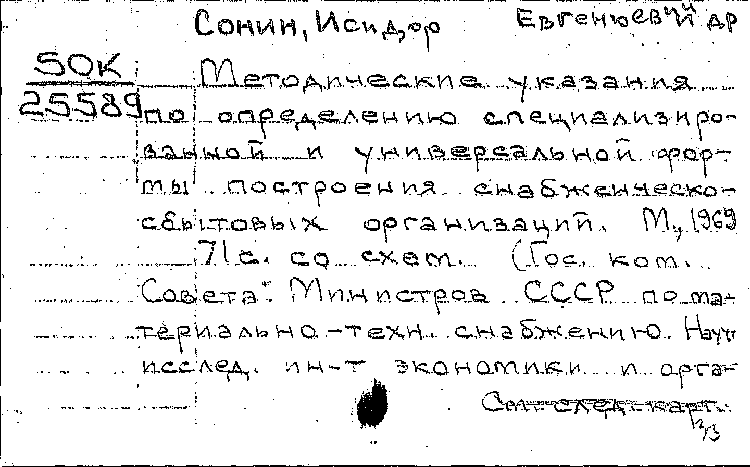 Сонин, Исидор Евгеньевич и др
50К
25589
Методические указания
по определению специализиро-
ванной и универсальной фор-
мы построения снабженческо-
сбытовых организаций. М., 1969
71 с. со схем. (Гос. ком.
Совета Министров СССР по ма-
териально-техн. снабжению. Науч
исслед. ин-т экономики и орга-
См. след. карт.